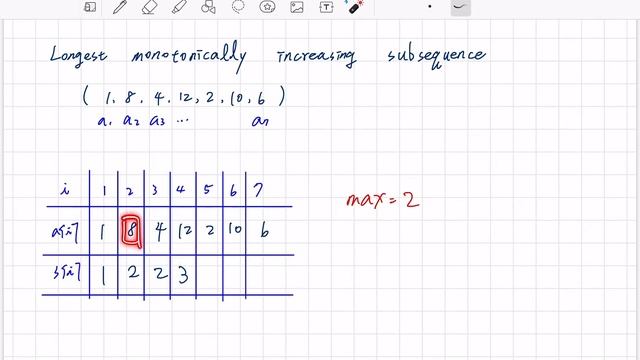 Longest monotonically increasing subsequence
( 1, 8, 4, 12, 2, 10, 6 )
a1 a2 a3 ... an
i 1 2 3 4 5 6 7
max = 2
a[i] 1 8 4 12 2 10 6
s[i] 1 2 2 3